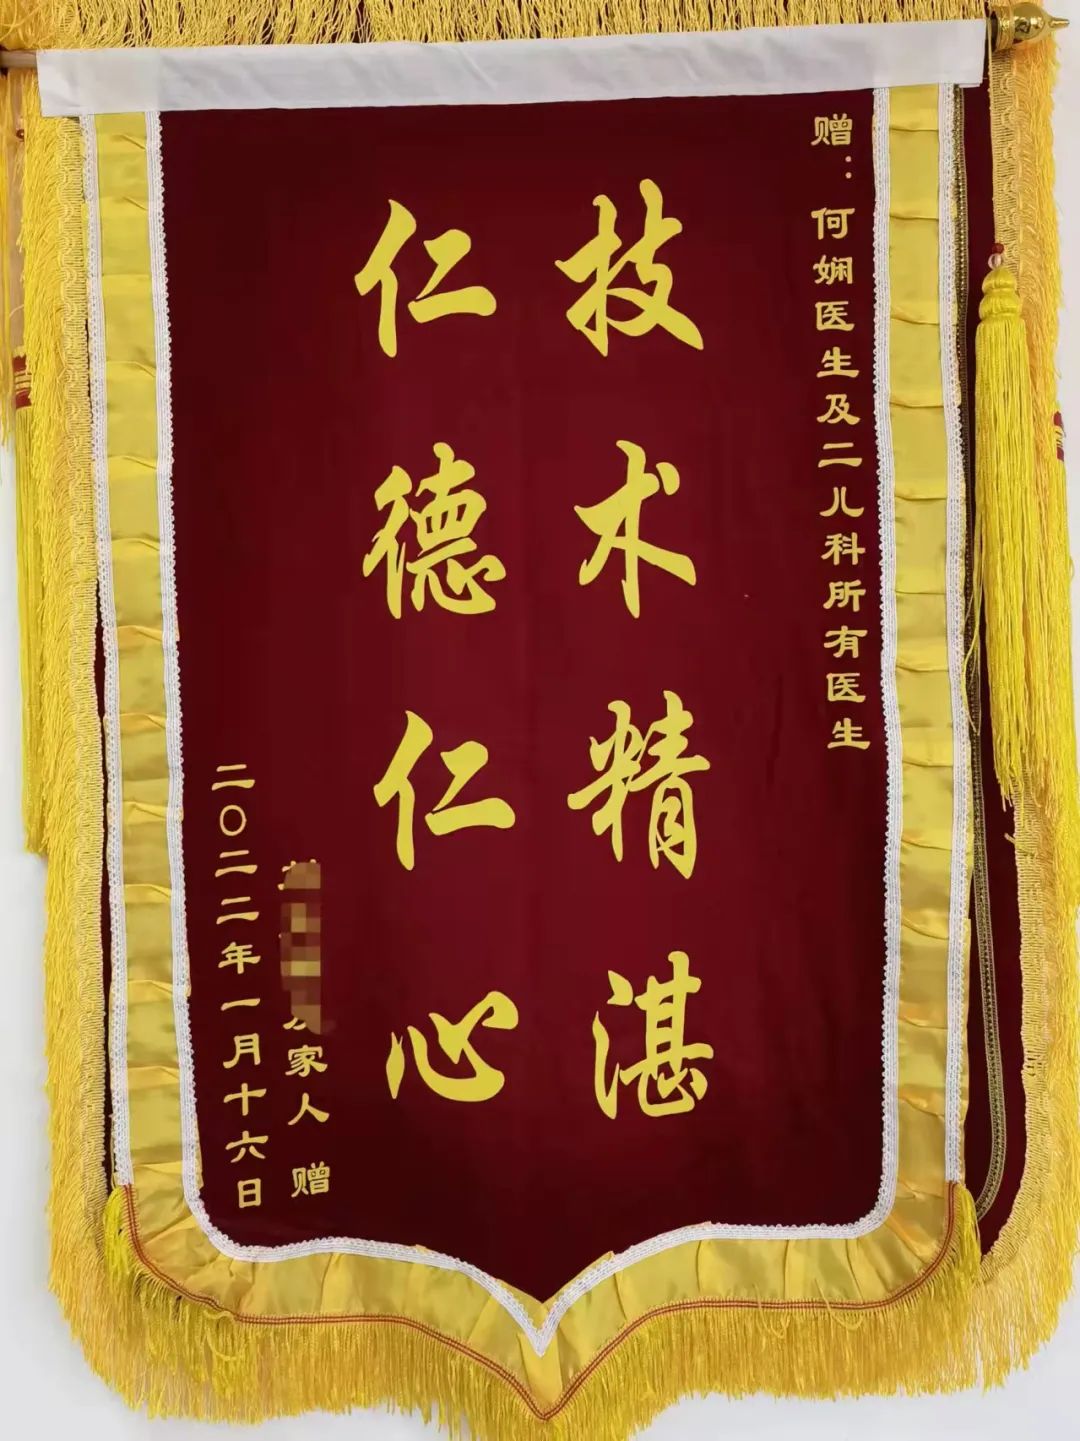 赠：何娴医生及二儿科所有医生
技术精湛
仁德仁心
家人 赠
二〇二二年一月十六日